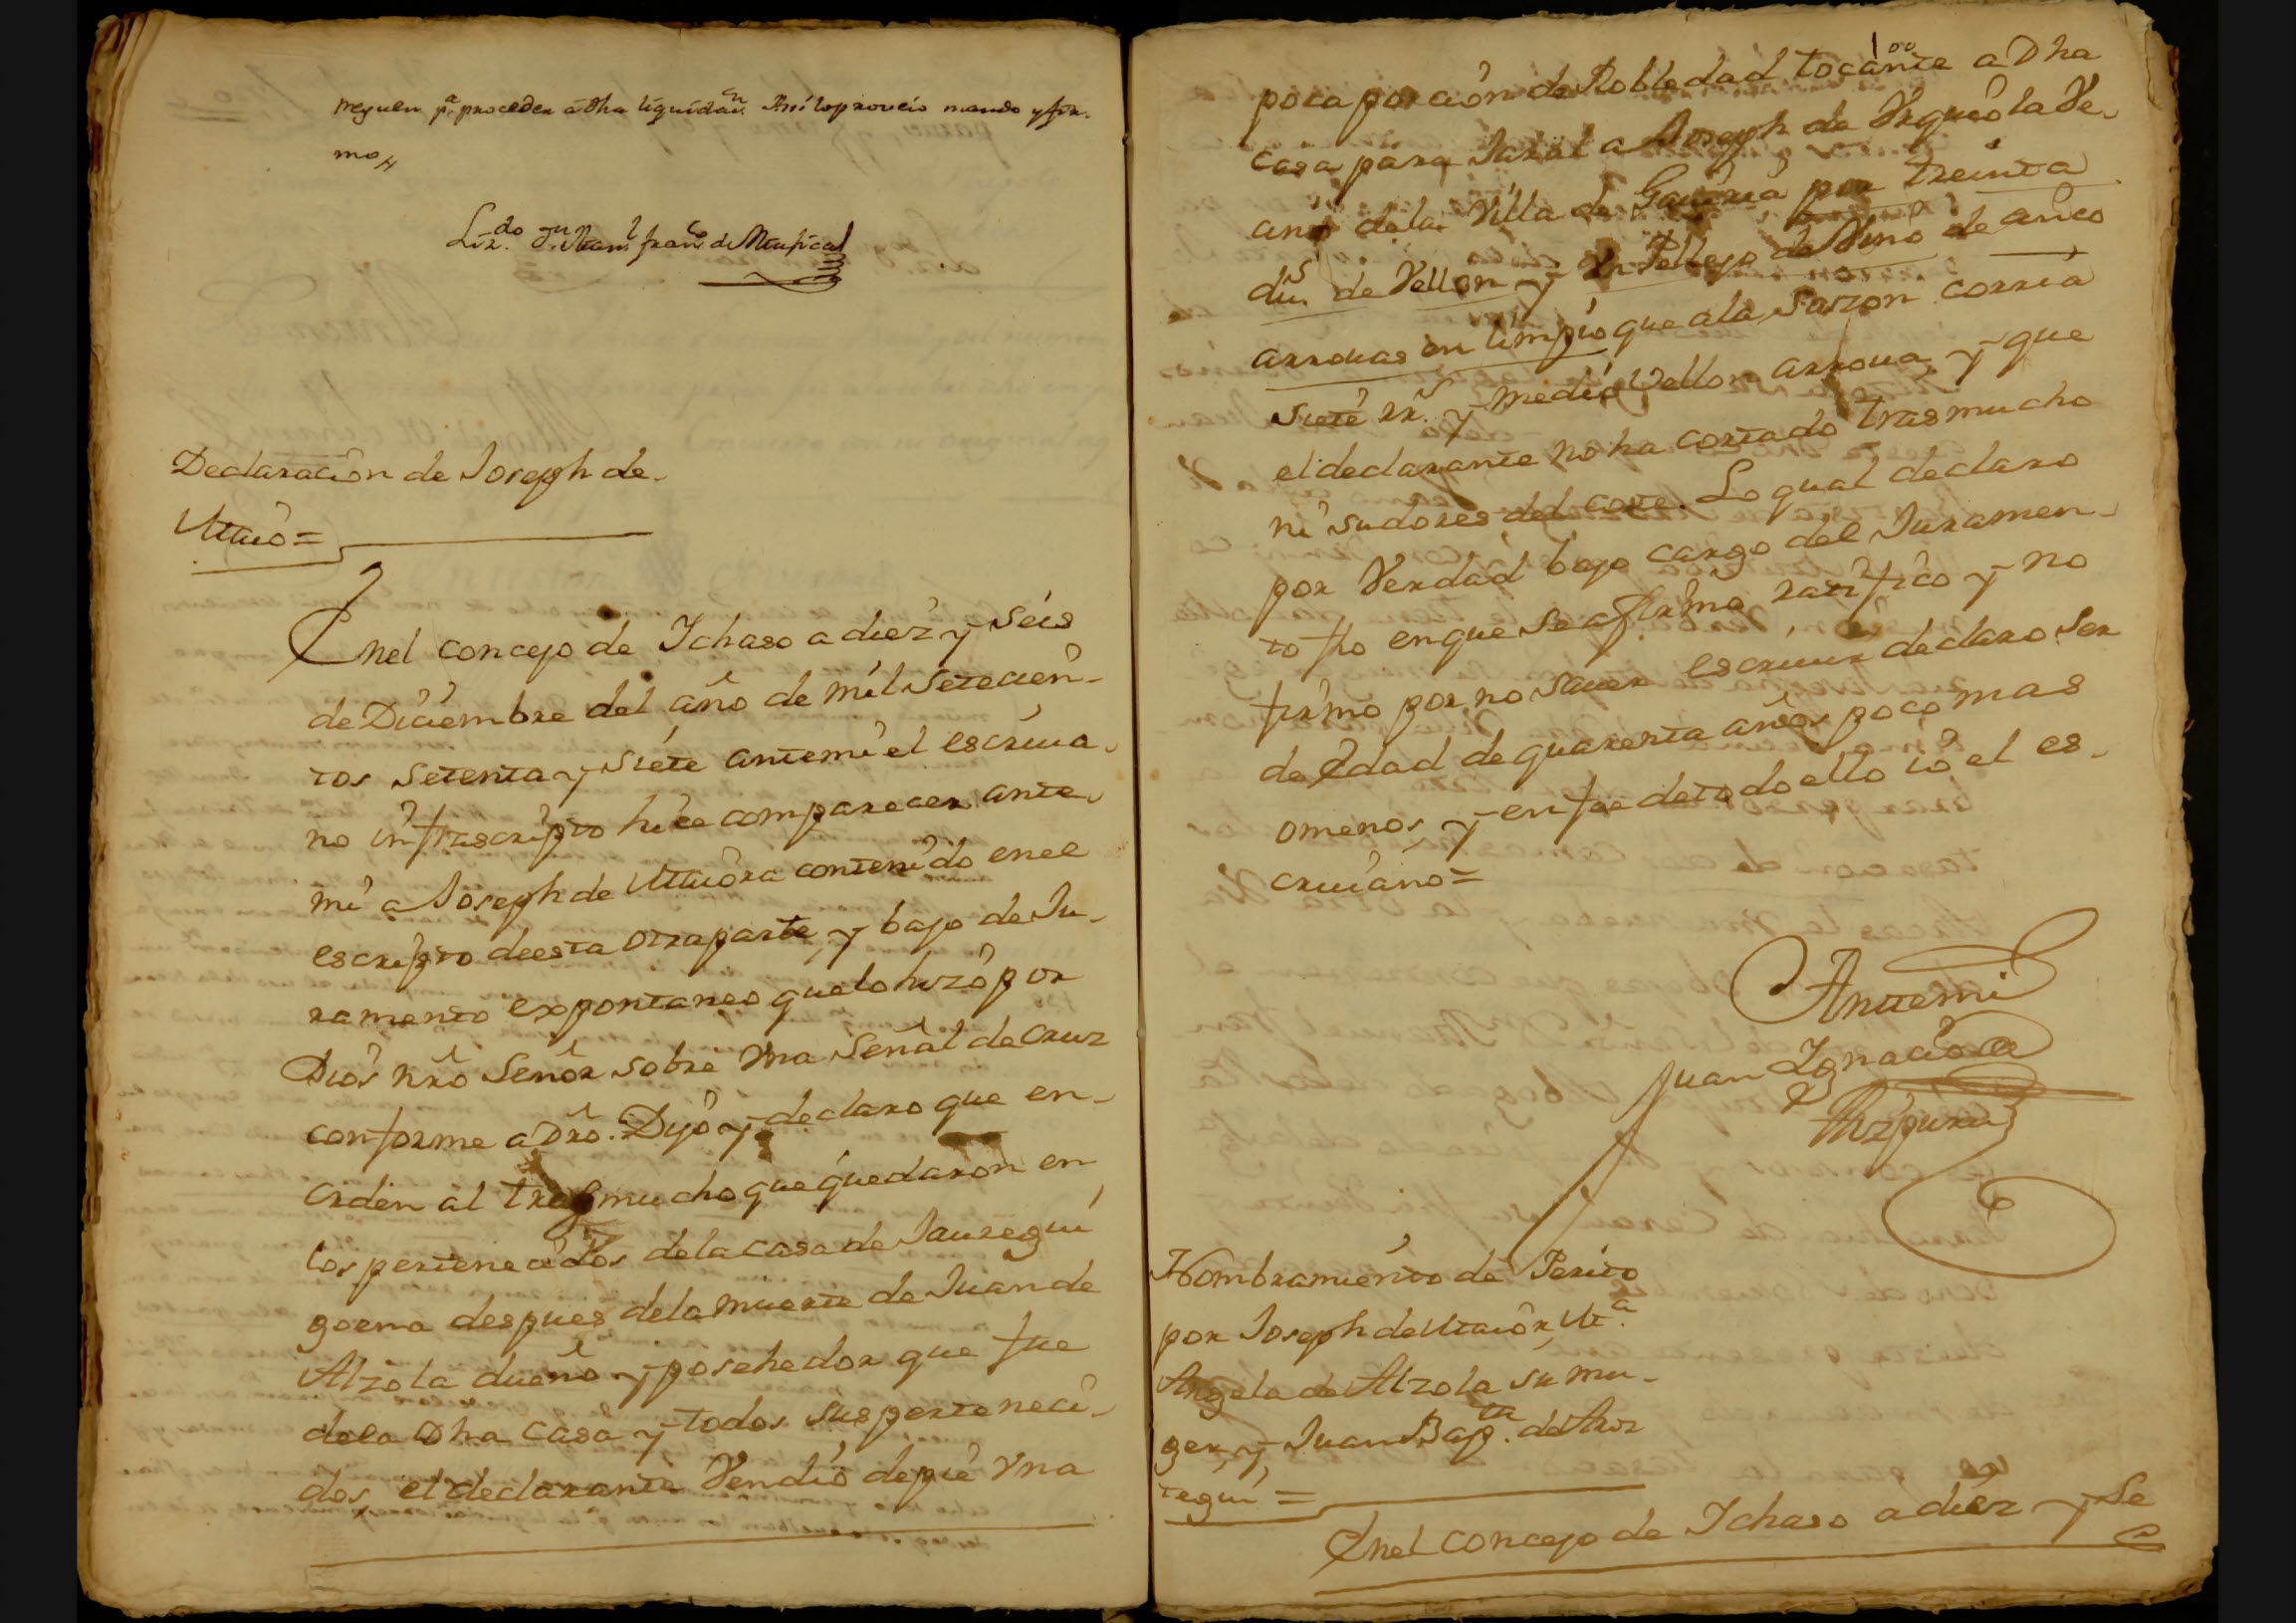 treguen p.ª proceder a dha liquidaⁿ. Así lo proveió mando y fir-
mo,,
Liz.do Dn Man.l fran.co de
Declaración de Joseph de
Utaió =
Enel concejo de Ichaso a diez y seis
de Diciembre del año de mil setecien-
tos setenta y siete antemi el escriva-
no infrascripto hice comparecer ante
mi a Joseph de Utaiôra contenido en el
escripto de esta otra parte, y bajo de Ju-
ramento expontaneo que lo hizó por
Dios nrô Señor sobre Vna Señal de Cruz
conforme a Drô. Dijo y declaro que en
orden al trasmucho que quedaron en
los pertenecidos dela casa de Jauregui
goena despues dela muerte de Juan de
Alzola dueño y posehedor que fue
dela Dha Casa y todos sus perteneci-
dos, el declarante Vendió de pie Vna
100
poca porción de Robledad tocante a Dha
casa para Jaral a Joseph de Vrquiola Ve-
ano dela Villa de Gaviria por treinta
dus de Vellon y Vn Pellejo de Vino de cinco
arrovas en limpio que ala sazon corria
siete rrs. y medio Vellon arrova, y que
el declarante no ha cortado trasmucho
ni sudores del core. Lo qual declaro
por Verdad bajo cargo del Juramen-
to fho enque se afirmo, ratifico y no
firmo por no saver escrivir declaro ser
de Edad de quarenta años poco mas
o menos, y en fee de todo ello io el es-
crivano =
Antemi
Juan Ignacio de
Nombramiento de Perito
por Joseph de Utaiôr, M.ª
Angela de Alzola su mu-
ger, y Juan Bap.ta de Ariz
tegui =
Enel concejo de Ichaso a diez y se